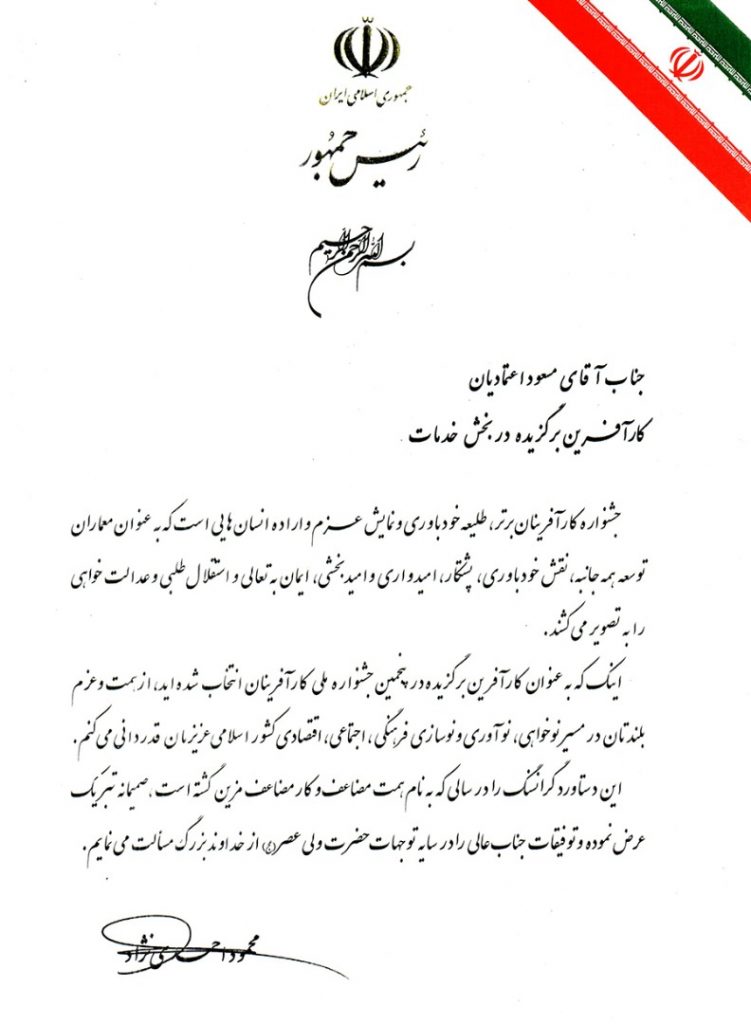 جمهوری اسلامی ایران
رئیس جمهور
بسم الله الرحمن الرحیم
جناب آقای مسعود اعتمادیان
کارآفرین برگزیده در بخش خدمات
جشنواره کارآفرینان برتر، طلیعه خودباوری و نمایش عزم و اراده انسان هایی است که به عنوان معماران
توسعه همه جانبه، نقش خودباوری، پشتکار، امیدواری و امیدبخشی، ایمان به تعالی و استقلال طلبی و عدالت خواهی
را به تصویر می کشند.
اینک که به عنوان کارآفرین برگزیده در پنجمین جشنواره ملی کارآفرینان انتخاب شده اید، از همت و عزم
بلندتان در مسیر نوخواهی، نوآوری و نوسازی فرهنگی، اجتماعی، اقتصادی کشور اسلامی عزیزمان قدردانی می کنم.
این دستاورد گرانسنگ را در سالی که به نام همت مضاعف و کار مضاعف مزین گشته است، صمیمانه تبریک
عرض نموده و توفیقات جناب عالی را در سایه توجهات حضرت ولی عصر(عج) از خداوند بزرگ مسألت می نمایم.
محمود احمدی نژاد